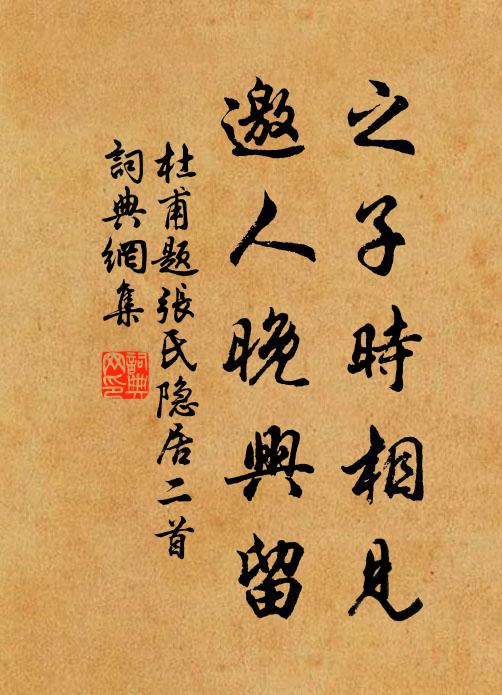 之子時相見
邀人晚興留
杜甫題張氏隐居二首
詞典網集
詞典网印